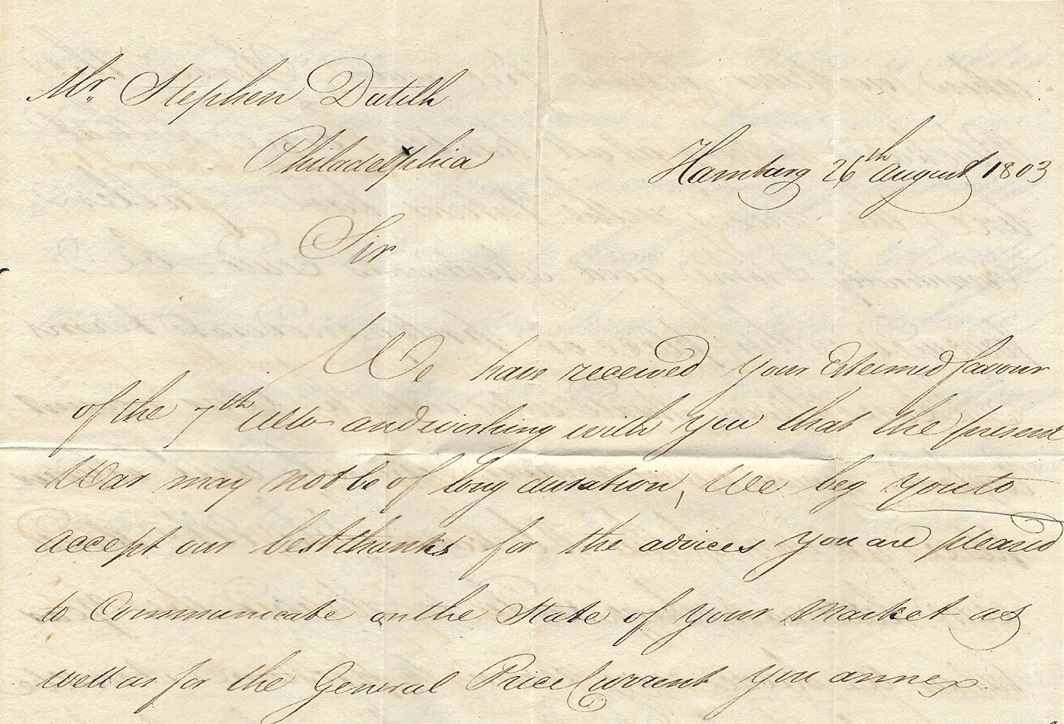 Mr. Stephen Dutilh
Philadelphia
Hamburg 26th august 1803
Sir
We have received your Esteemed favour
of the 7th ulto and wishing with you that the present
War may not be of long duration, We beg you to
accept our best thanks for the advices you are pleased
to Communicate on the State of your Market as
well as for the General Price Current you annex.